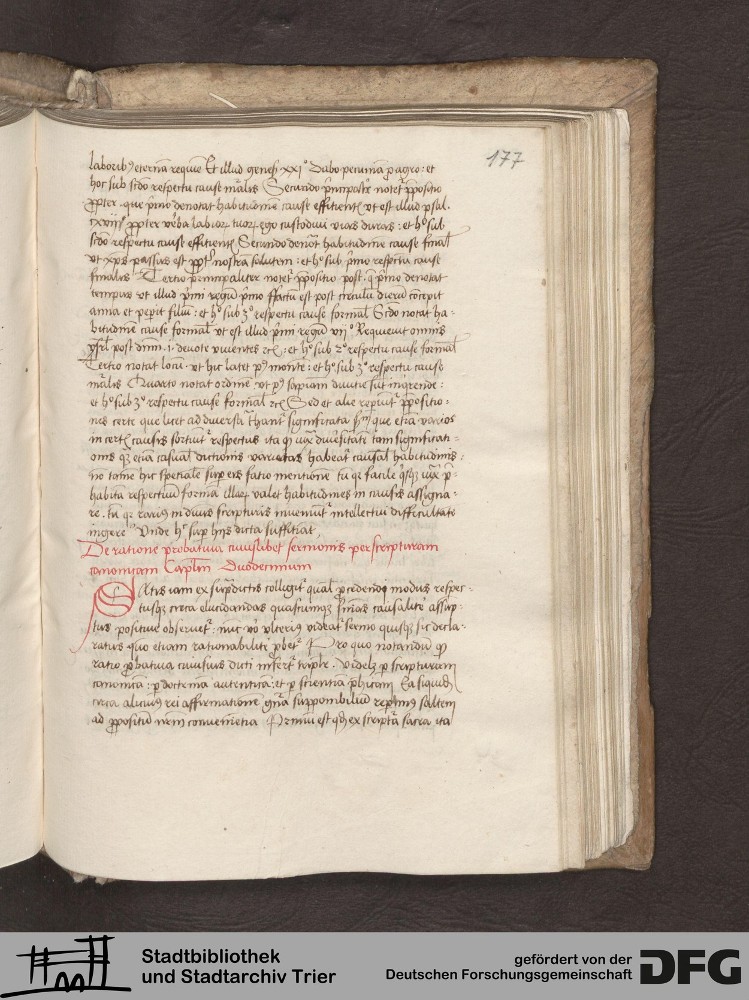 177
laborib9 eternā requiē Et illud genesi xxi° Dabo pecuniā p agro : et
hoc sub scdo respectu cause mālis Secundo pncipalr notet ppositio
ppter . que pmo denotat habitudinē cause effitientis vt est illud psal.
ppter verba labior tuor ego custodivi vias duras : et ho sub
scdo respectu cause effitientis Secundo denot habitudinē cause final
vt xps passus est ppt nostrā salutem : et ho sub pmo respectu cause
finalis Tertio principaliter notet ppositio post . q pmo denotat
tempus vt illud pmi regū pmo ffactū est post circulū dierū cōcepit
anna et peperit filiū : et ho sub 3° respectu cause formal Scdo notat ha-
bitudinē cause formal vt est illud pmi regū vii° Requieuit omnis
isrl post dnm .i. deuote viuentes rc : et ho sub 2° respectu cause formal
Tertio notat locū vt hic latet p9 montē : et ho sub 3° respectu cause
mālis Quarto notat ordinē vt p9 sapiam diuitie sūt
et ho sub 3° respectu cause formal rc Sed et alie reperiunt ppositio-
nes certe que licet ad diuersa significata que etiā varios
in certis causis sortiunt respectus ita q iux diuersitatē tam significati-
onis q etiā casual dictionis varietas habeat causal habitudinis :
nō tamē hic speciale sup eis facio mentionē tū q facile qsq iux p-
habita respectiuū forma illar valet habitudines in causis assigna-
re . tū q rarius in diuis scripturis inueniunt intellectui difficultatē
ingere Vnde h sup hijs dicta suffitiāt
De ratione probatiua cuiuslibet sermonis per scripturam
canonicam Caplm Duodecimum
Satis iam ex supdictis colligit qual pcedendi modus respec-
tusq circa elucidandas quascumq causalite assūp-
tas positiue obseruet . nūc vo vlterius videat sermo quisq sic decla-
ratus quo etiam rationabilite pbet Pro quo notandū q
ratio pbatiua cuiusuis dicti infert triplr . videlz p scripturam
canonicā : p doctrinā autenticā : et p scientiā phicam Ea siquid
circa alicuius rei affirmationē gnā supponibiliū repimus saltem
ad ppositū nrm conuenientia Primū est q ex scriptā sacra ita
Stadtbibliothek
und Stadtarchiv Trier
gefördert von der
Deutschen Forschungsgemeinschaft
DFG